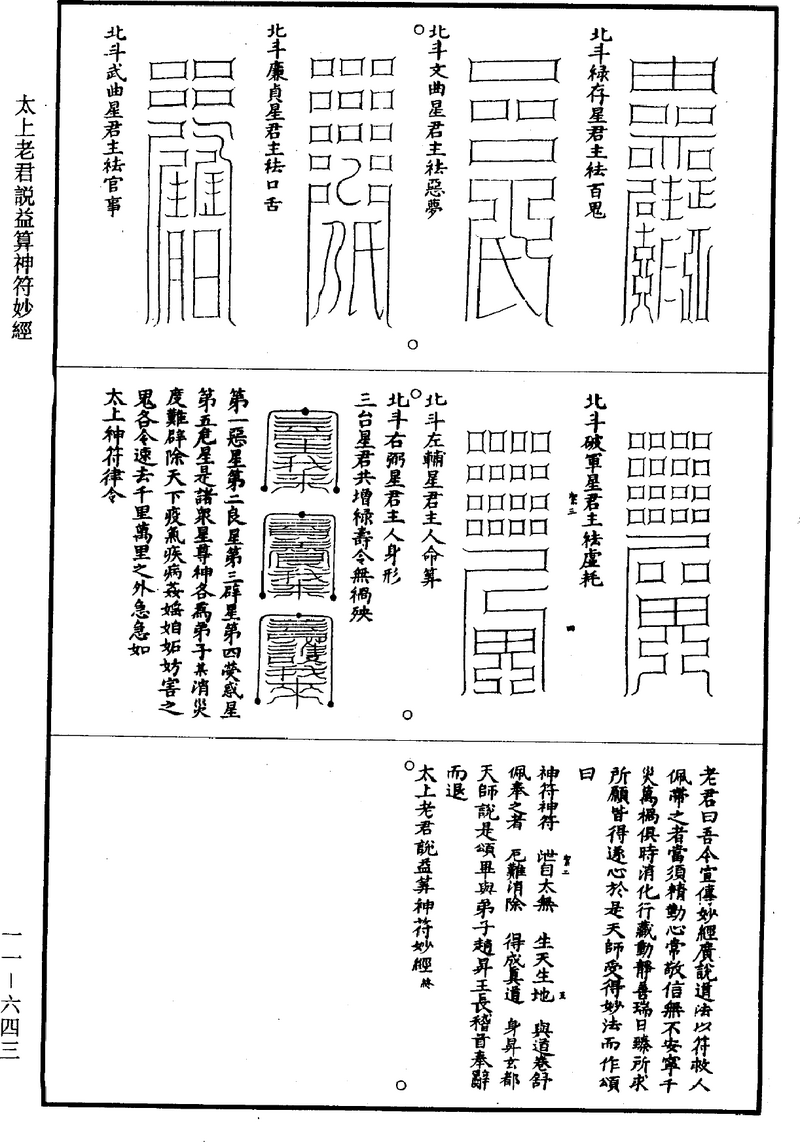 北斗祿存星君主祛百鬼
北斗文曲星君主祛惡夢
北斗廉貞星君主祛口舌
北斗武曲星君主祛官事
北斗破軍星君主祛虛耗
北斗左輔星君主人命算
北斗右弼星君主人身形
三台星君共增祿壽令無禍殃
第一惡星第二良星第三辟星第四熒惑星
第五危星是諸衆星尊神各爲弟子某消災
度難辟除天下疫氣疾病姦
妬妨害之
鬼各令速去千里萬里之外急急如
太上神符律令
老君曰吾今宣傳妙經廣說道法以符救人
佩帶之者當須精勤心常敬信無不安寧千
災萬禍俱時消化行藏動靜善瑞日臻所求
所願皆得遂心於是天師受得妙法而作頌
曰
神符神符　泄自太無　生天生地　與道卷舒
佩奉之者　厄難消除　得成眞道　身昇玄都
天師說是頌畢與弟子趙昇王長稽首奉辭
而退
太上老君說益算神符妙經終
太上老君説益算神符妙經
一一－六四三